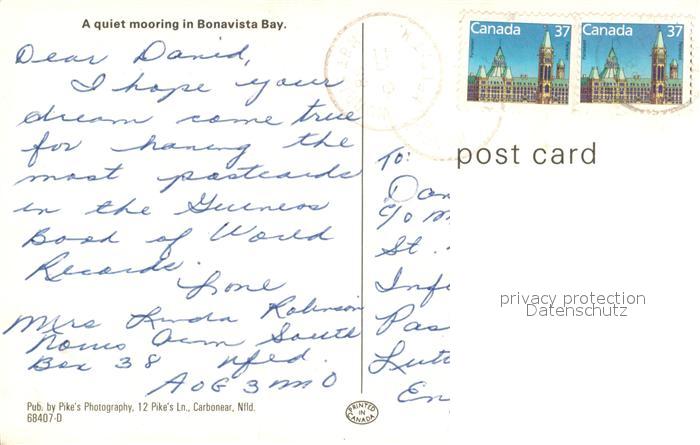 A quiet mooring in Bonavista Bay.
Dear David,
I hope your
dream come true
for having the
most postcards
in the Guiness
Book of World
Records.
Love
Mrs Linda Robinson
South
Box 38 Nfld.
A0G 3M0
Pub. by Pike's Photography, 12 Pike's Ln., Carbonear, Nfld.
68407-D
PRINTED IN CANADA
Canada 37
Canada 37
post card
To:
c/o M
St.
Inf
Pas
Lut
En
privacy protection
Datenschutz